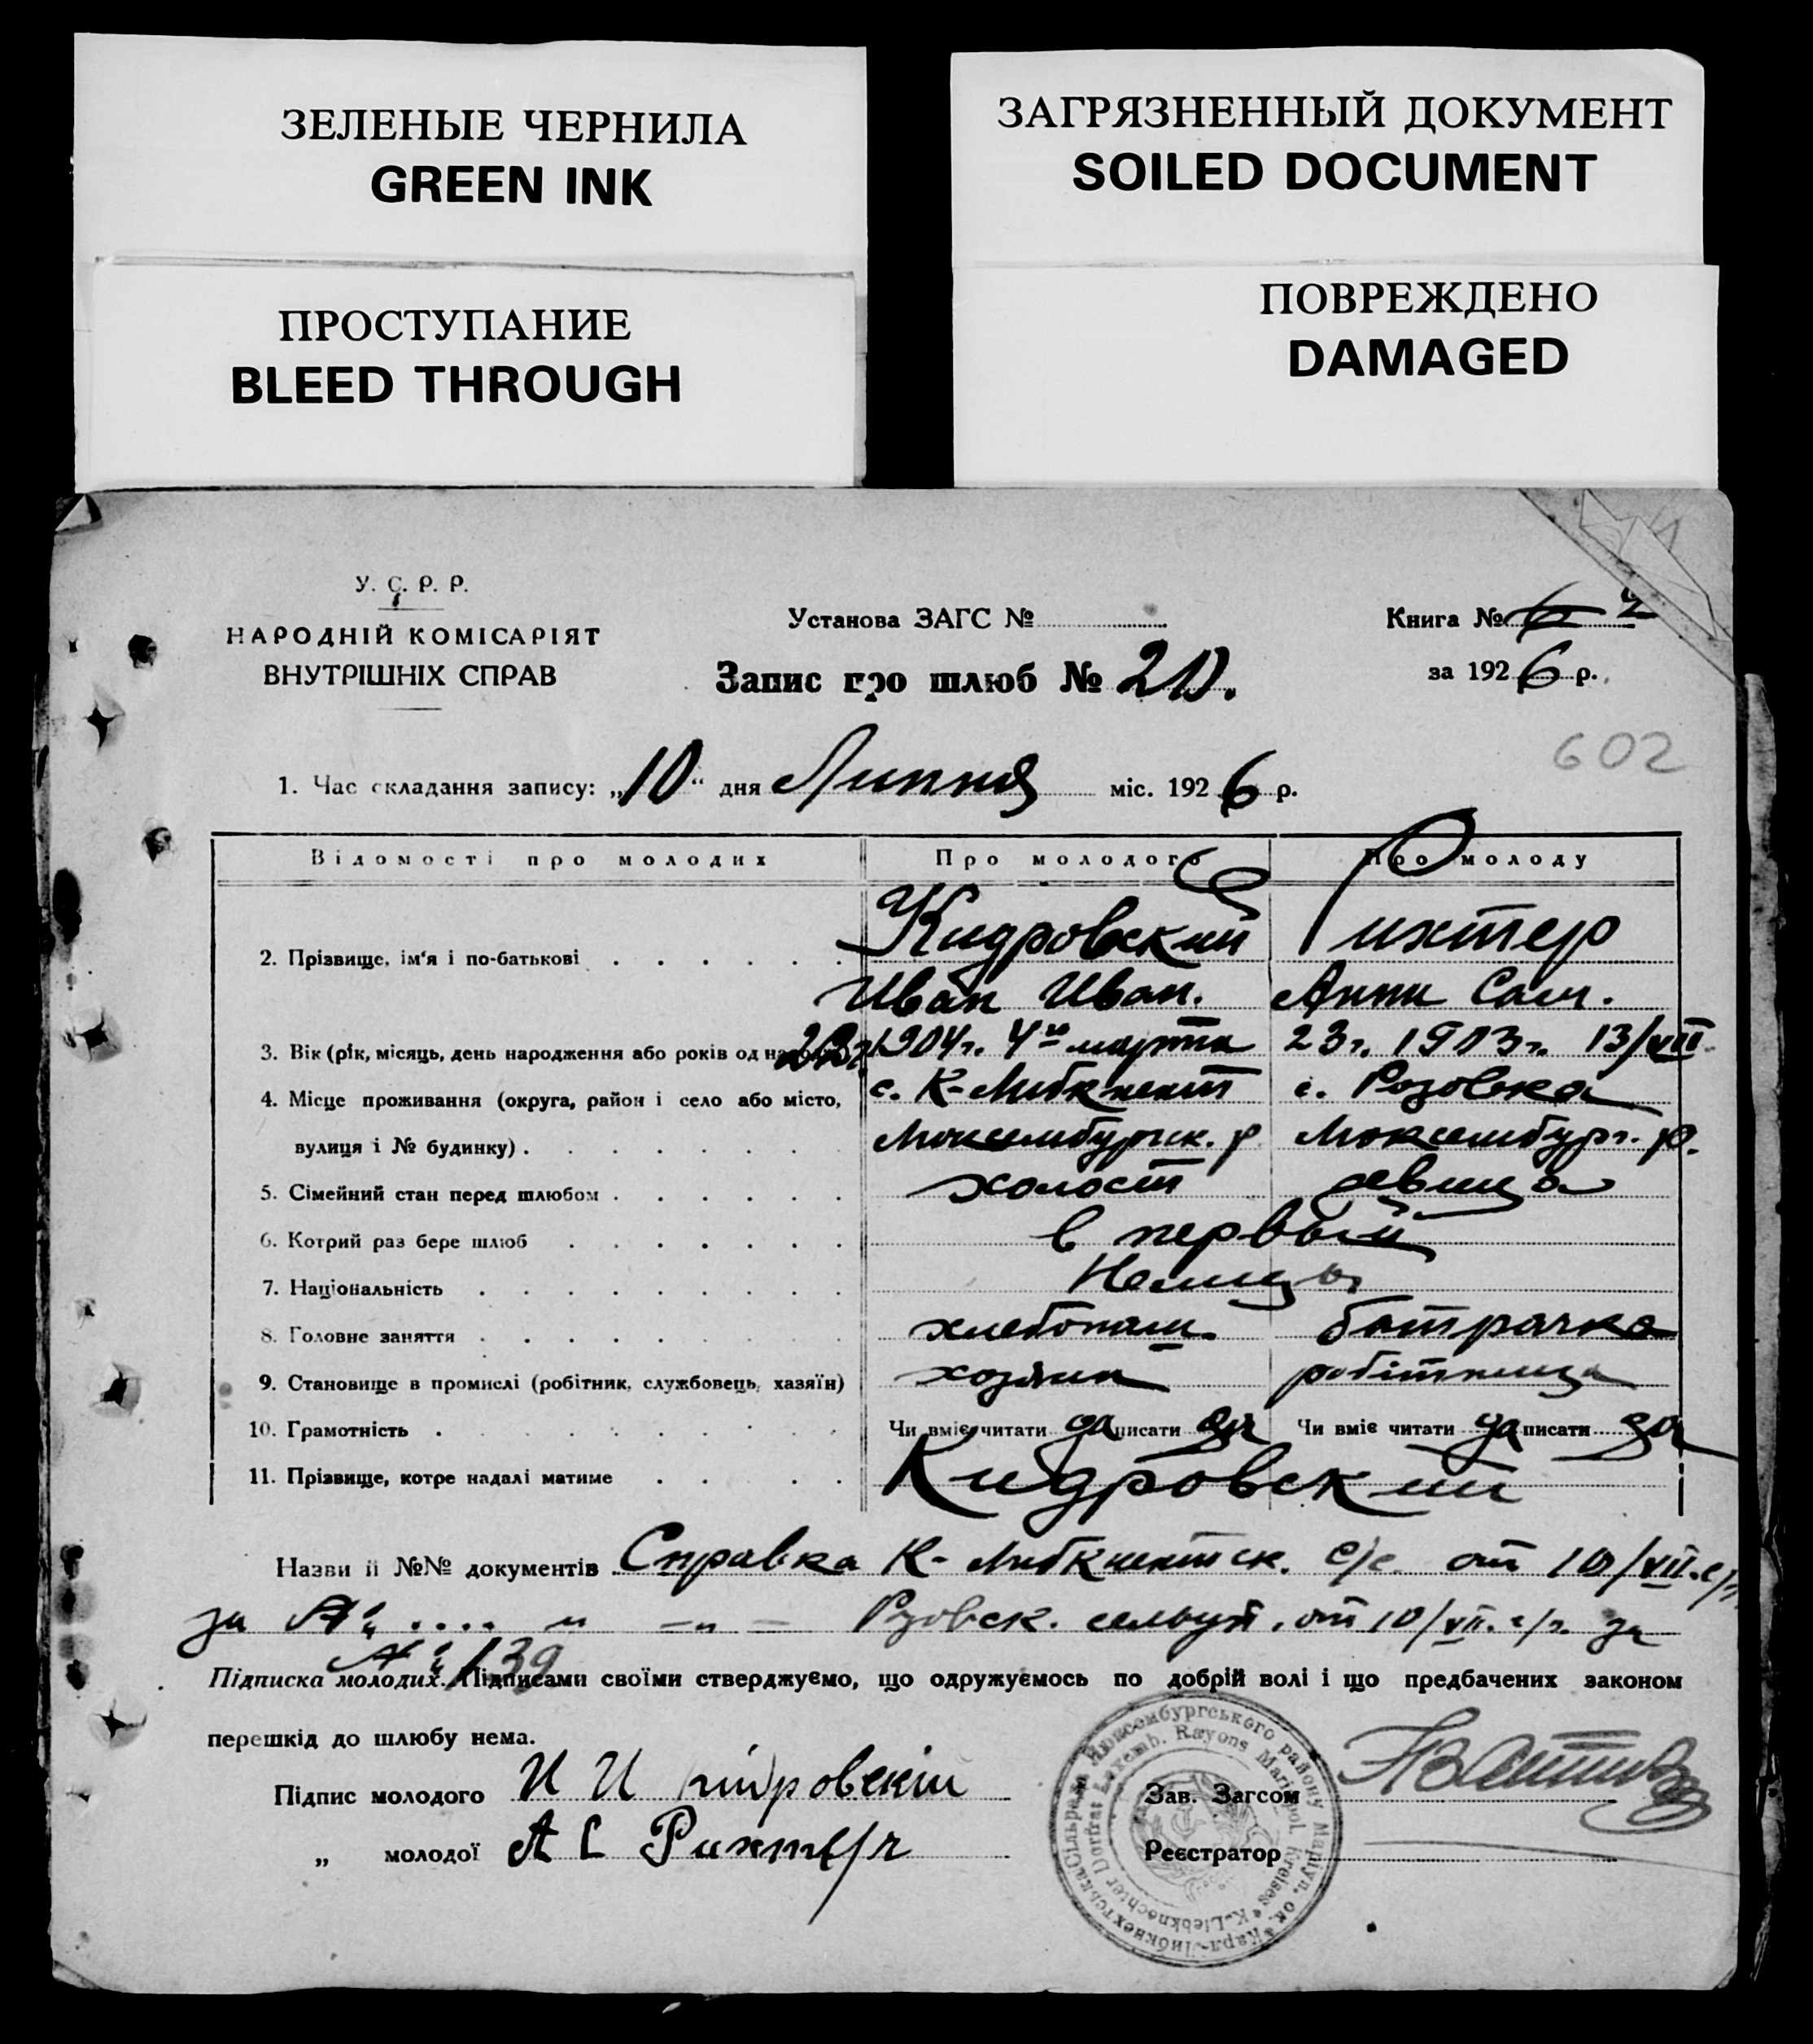 ЗЕЛЕНЫЕ ЧЕРНИЛА
GREEN INK
ПРОСТУПАНИЕ
BLEED THROUGH
ЗАГРЯЗНЕННЫЙ ДОКУМЕНТ
SOILED DOCUMENT
ПОВРЕЖДЕНО
DAMAGED
У. С. Р. Р.
НАРОДНІЙ КОМІСАРІЯТ
ВНУТРІШНІХ СПРАВ
Установа ЗАГС №
Запис про шлюб № 20.
Книга № 6 2
за 1926 р.
602
1. Час складання запису: „10“ дня Липня міс. 1926 р.
Відомості про молодих Про молодого Про молоду
Кидровский Рихтер
2. Прізвище, ім'я і по-батькові
Иван Иван. Анни Сам.
3. Вік (рік, місяць, день народження або років од 1904 г. 4го марта 23 г. 1903 г. 13/VII
4. Місце проживання (округа, район і село або місто, с. К-Либкнехт с. Розовка
вулиця і № будинку) Люксембургск. р. Люксембург. р.
5. Сімейний стан перед шлюбом холост девица
6. Котрий раз бере шлюб в первый
7. Національність Немцы
8. Головне заняття хлебопаш. батрачка
9. Становище в промислі (робітник, службовець, хазяїн) хозяин робітница
10. Грамотність Чи вміє читати да писати да Чи вміє читати да писати да
11. Прізвище, котре надалі матиме Кидровский
Назви й №№ документів Справка К-Либкнехтск. с/с. от 10/VII. с/г.
за № .... " -"- Розовск. сельуп. от 10/VII. с/г. за
№ 139
Підписка молодих. Підписами своїми стверджуємо, що одружуємось по добрій волі і що предбачених законом
перешкід до шлюбу нема.
Підпис молодого И И Кидровскій
„ молодої А С Рихтер
Зав. Загсом
Реєстратор
Карл-Лібкнехтська Сільрада Люксембургського району Маріуп. ок.
K. Liebknechter Dorfrat Luxemb. Rayons Mariupol. Kreises